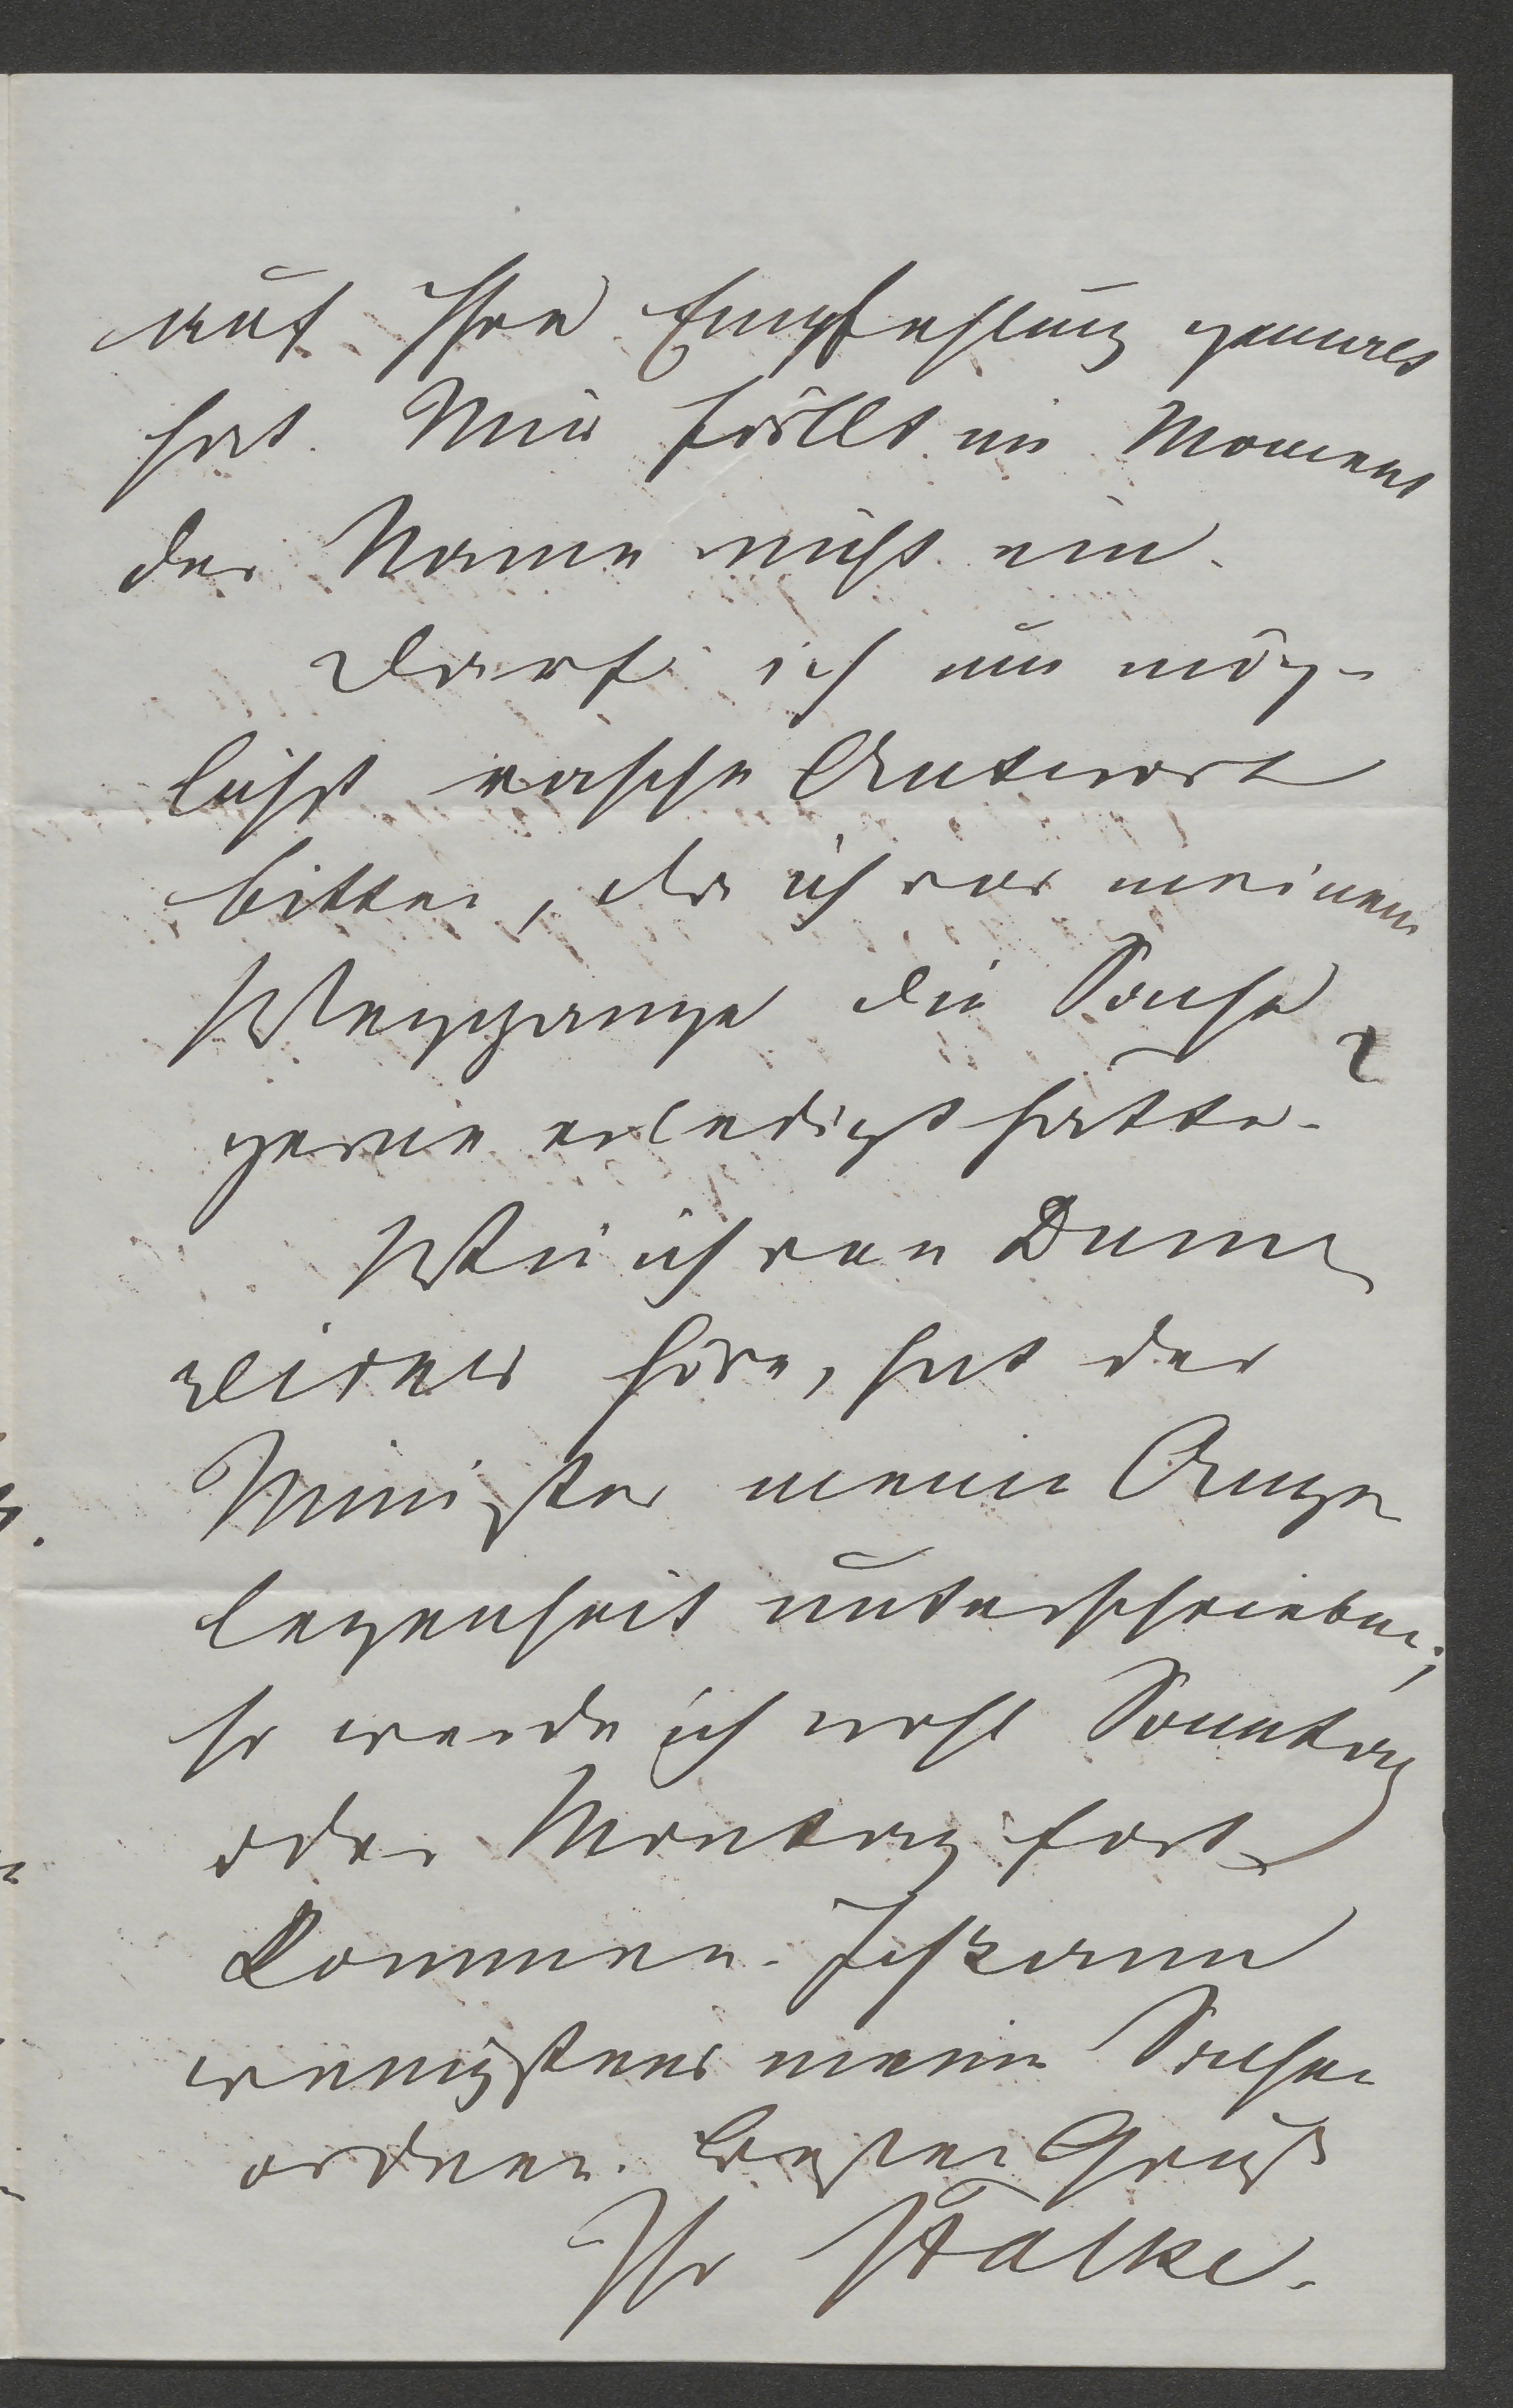 auf Ihre Empfehlung gemalt
hat. Mir fällt im Moment
der Name nicht ein.
Darf ich um mög-
lichst rasche Antwort
bitten, da ich vor meinem
Weggange die Sache
gerne erledigt hätte.
Wie ich von Dum
reicher höre, hat der
Minister meine Ange
legenheit unterschrieben;
so werde ich wohl Sonntag
oder Montag fort
kommen. Ich kann
wenigstens meine Sachen
ordnen. Besten Gruß
Ihr JFalke.